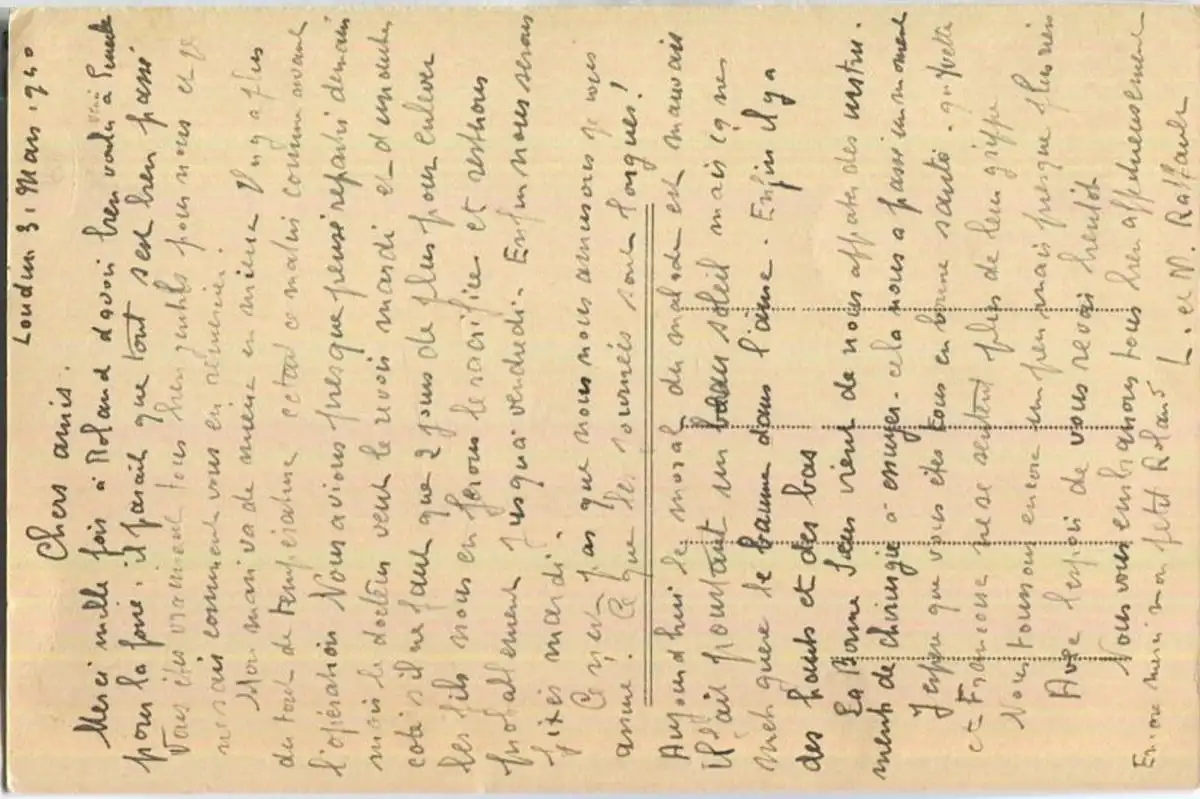 Loudun 31 Mars 1940
Chers amis.
Merci mille fois à Roland d'avoir bien voulu venir à
pour la foire. il parait que tout s'est bien passé
Vous êtes vraiment tous bien gentils pour nous et je
ne sais comment vous en remercier.
Mon mari va de mieux en mieux Il n'y a plus
du tout de température c'était ce matin comme avant
l'opération Nous avions presque pensé repartir demain
mais le docteur veut le revoir mardi et d'un autre
coté s'il ne faut que 2 jours de plus pour enlever
les fils nous en ferons le sacrifice et resterons
probablement jusqu'à vendredi. Enfin nous serons
fixés mardi.
Ce n'est pas que nous nous amusons je vous
assure. Ce que les journées sont longues!
Aujourd'hui le moral du malade est mauvais
Il fait pourtant un beau soleil mais ça ne
met guère le baume dans l'âme. Enfin il y a
des hauts et des bas
La Bonne Sœur vient de nous apporter des instru-
ments de chirurgie à essuyer. cela nous a passé un moment
J'espère que vous êtes tous en bonne santé. qu'Yvette
et Francine ne se sentent plus de leur grippe
Nous toussons encore un peu mais presque plus rien
Avec l'espoir de vous revoir bientôt
Nous vous embrassons tous bien affectueusement
Encore merci mon petit Roland
L. et M. Raffault